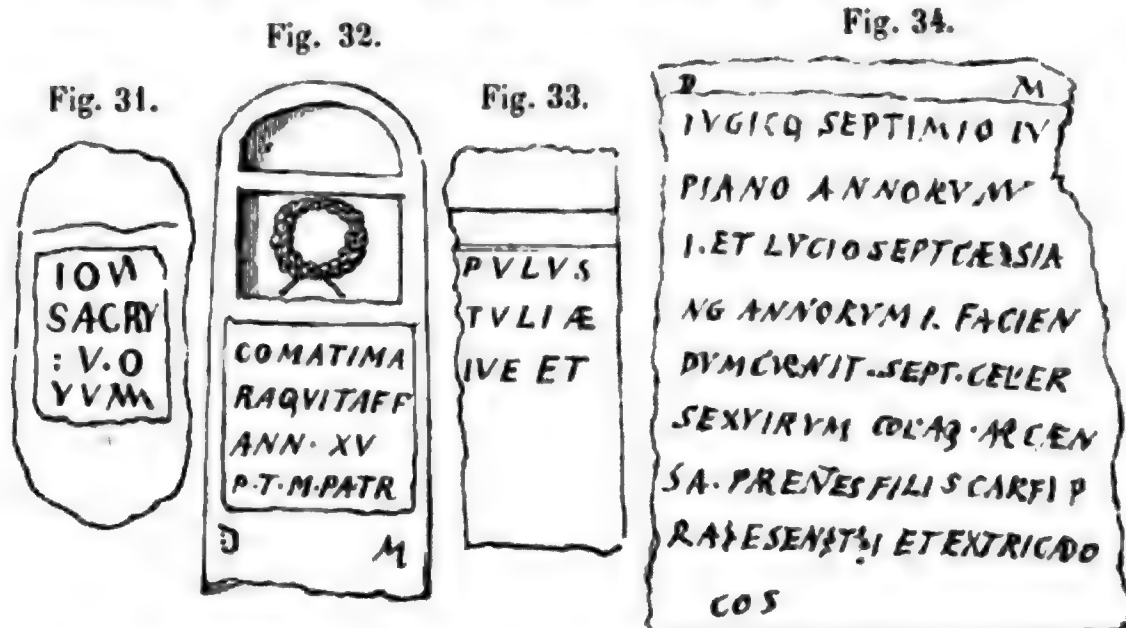 Fig. 31.
IOVI
SACRV
: V.O
VVM
Fig. 32.
COMATIMA
RAQVITAFF
ANN. XV
P.T.M.PATR
D M
Fig. 33.
PVLVS
TVLIÆ
IVE ET
Fig. 34.
D M
IVGICO SEPTIMIO IV
PIANO ANNORVM
I. ET LVCIO SEPT
NG ANNORVM I. FACIEN
SEPT. CELER
SEXVIRVM COL AQ. ARCEN
SA. PARENTES FILIS CARFI P
ET EXTRICADO
COS